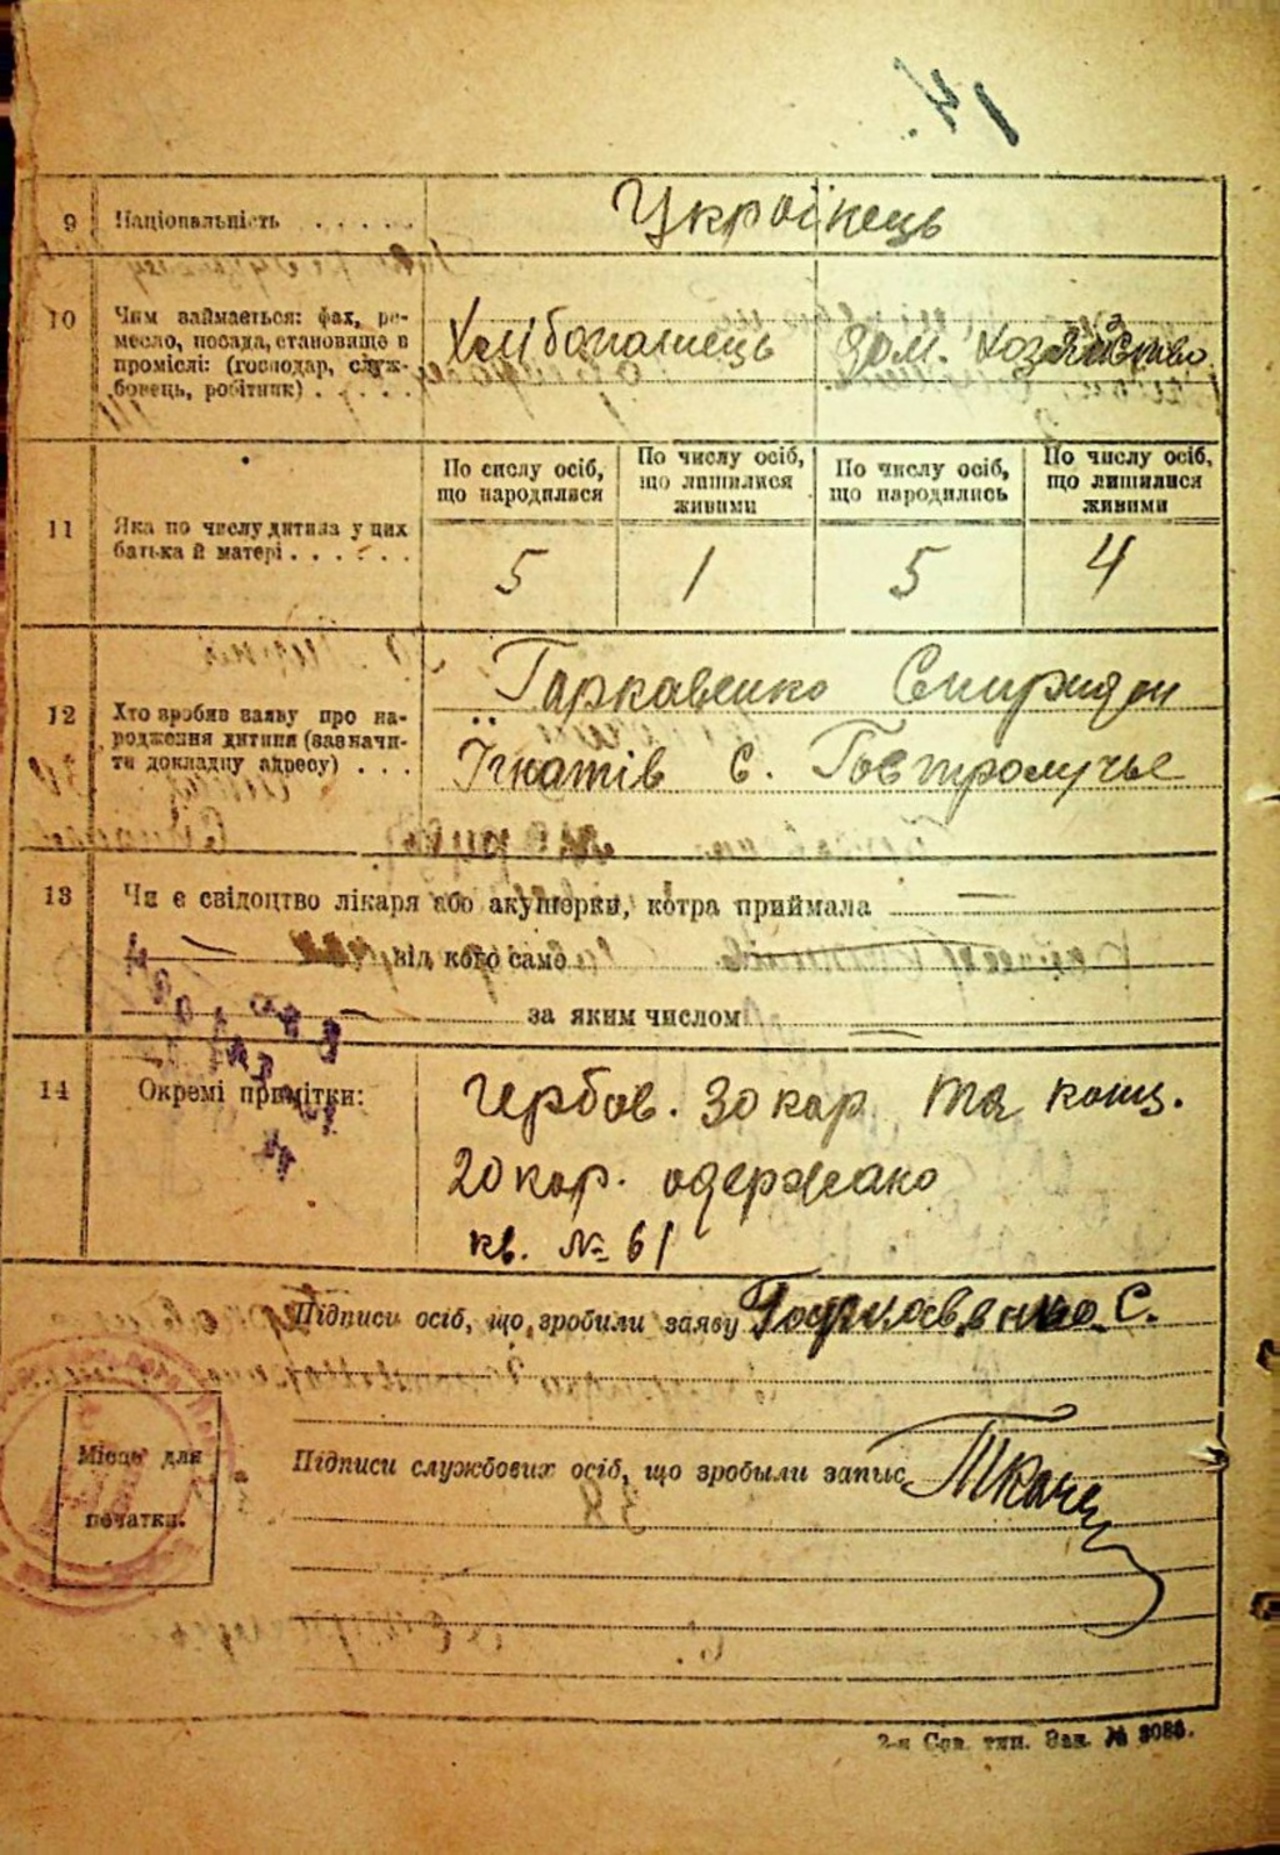 9 Національність . . . . .
Украінець
10 Чим займається: фах, ре-
месло, посада, становище в
промислі: (господар, служ-
бовець, робітник) . . . . .
Хлібопашець
дом. хозяйство
По числу осіб,
що народилися
По числу осіб,
що лишилися
живими
По числу осіб,
що народились
По числу осіб,
що лишилися
живими
11 Яка по числу дитина у цих
батька й матері . . . . . .
5 1 5 4
12 Хто зробив заяву про на-
родження дитини (зазначи-
ти докладну адресу) . . .
Гаркавенко Спиридон
Їгнатів с.
13 Чи є свідоцтво лікаря або акушерки, котра приймала
від кого само
за яким числом
14 Окремі примітки:
Гербов. 30 кор та канц.
20 кор. одержано
кв. № 61
Підписи осіб, що зробили заяву Гаркавенко С.
Підписи службових осіб, що зробыли запис
Місце для
печатки.
2-я Сов. тип. Зак. №